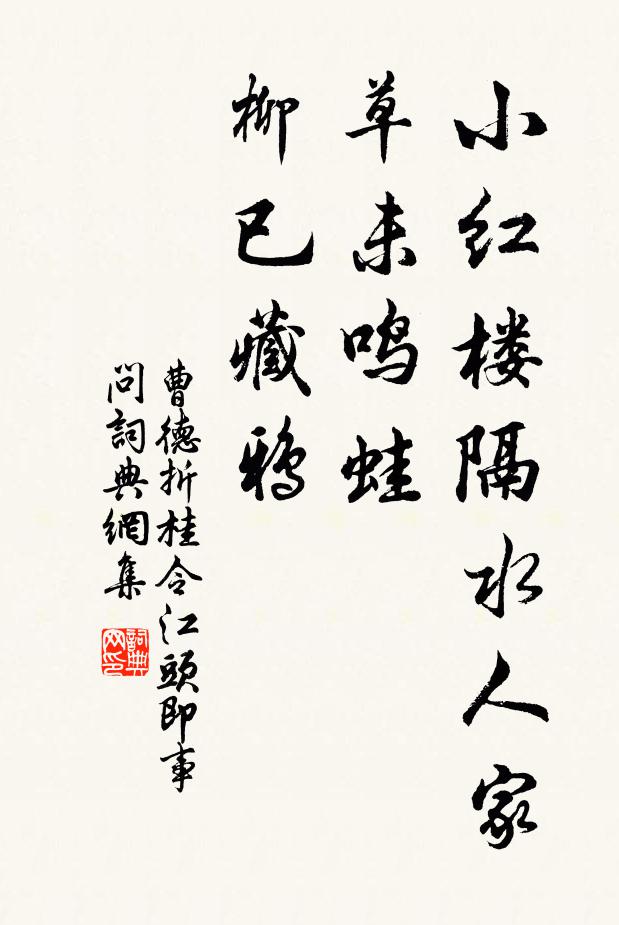 小红楼隔水人家
草未鸣蛙
柳已藏鸦
曹德折桂令江頭即事
問詞典網集
詞典网印